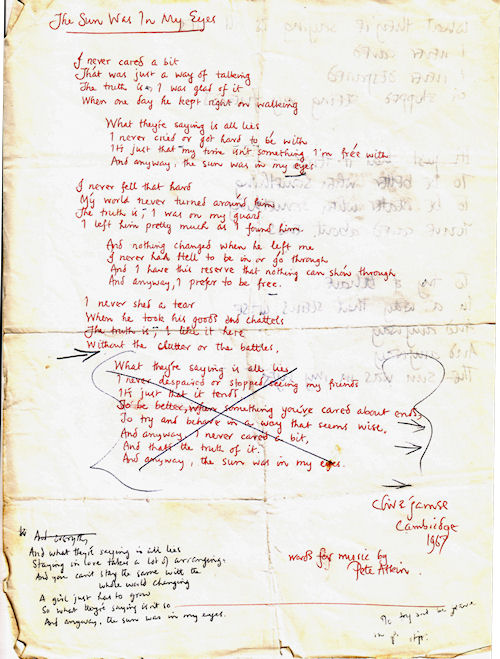 The Sun Was In My Eyes
I never cared a bit
That was just a way of talking
The truth is, I was glad of it
When one day he kept right on walking
What they're saying is all lies
I never cried or got hard to be with
It's just that my time isn't something I'm free with
And anyway, the sun was in my eyes
I never fell that hard
My world never turned around him
The truth is, I was on my guard
I left him pretty much as I found him.
And nothing changed when he left me
I never had Hell to be in or go through
And I have this reserve that nothing can show through
And anyway, I prefer to be free.
I never shed a tear
When he took his goods and chattels
The truth is, I like it here
Without the clutter or the battles.
What they're saying is all lies
I never despaired or stopped seeing my friends
It's just that it tends
To be better, when something you've cared about ends,
To try and behave in a way that seems wise.
And anyway, I never cared a bit,
And that's the truth of it.
And anyway, the sun was in my eyes.
Clive James
Cambridge
1967
words for music by
Pete Atkin.
And everything
And what they're saying is all lies
Staying in love takes a lot of arranging.
And you can't stay the same with the
whole world changing
A girl just has to grow
So what they're saying isn't so
And anyway, the sun was in my eyes.
To try and be